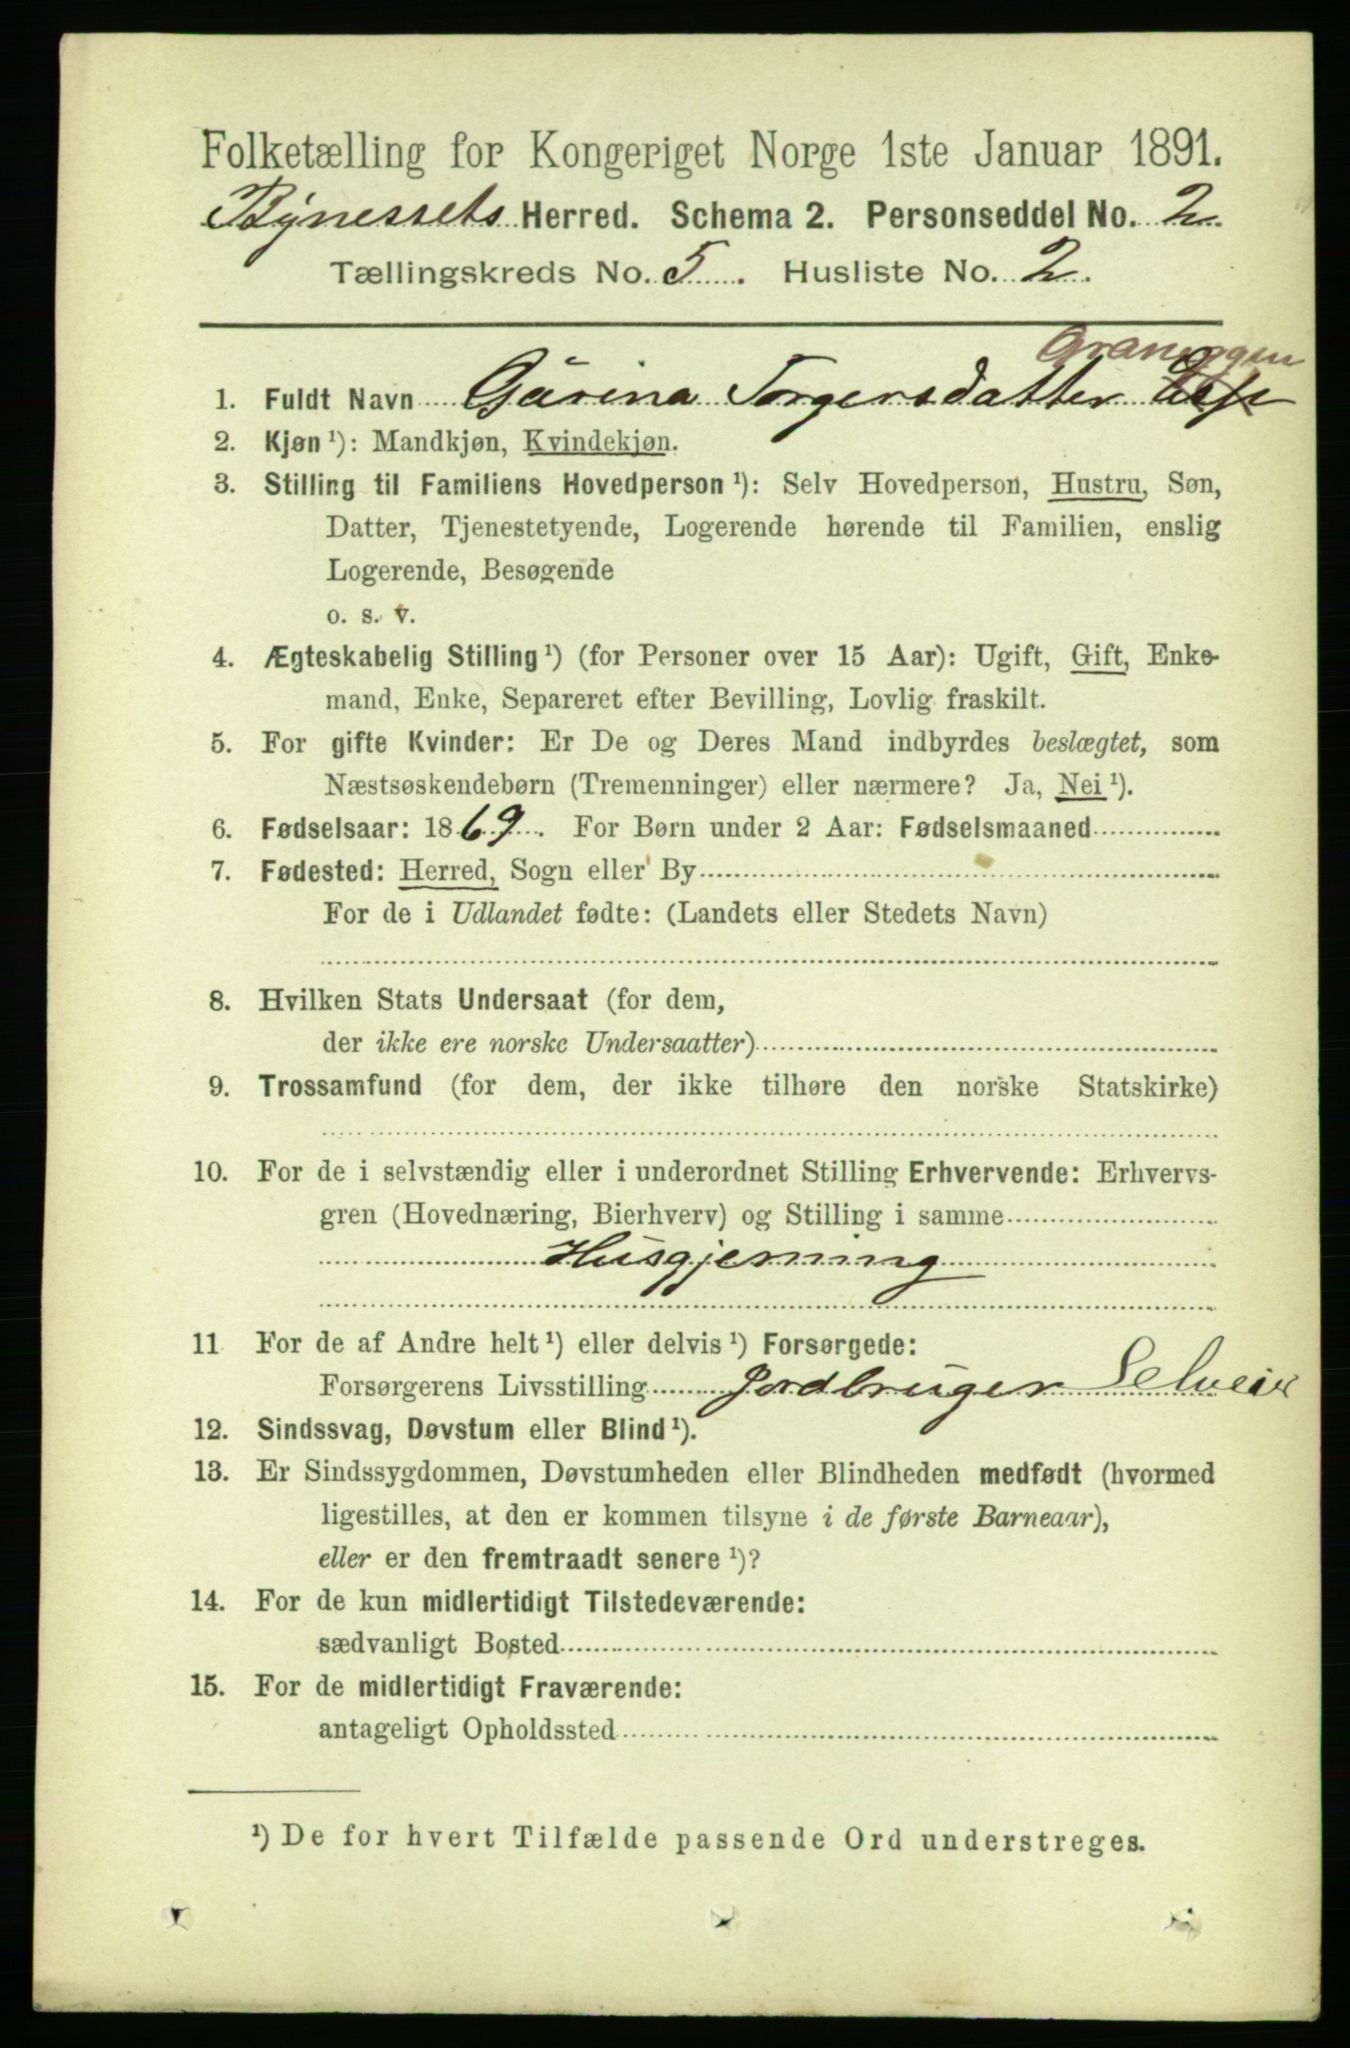 Folketælling for Kongeriget Norge 1ste Januar 1891.
Bynessets Herred. Schema 2. Personseddel No. 2
Tællingskreds No. 5. Husliste No. 2.
1. Fuldt Navn Gurina Torgersdatter
2. Kjøn ¹): Mandkjøn, Kvindekjøn.
3. Stilling til Familiens Hovedperson ¹): Selv Hovedperson, Hustru, Søn,
Datter, Tjenestetyende, Logerende hørende til Familien, enslig
Logerende, Besøgende
o. s. v.
4. Ægteskabelig Stilling ¹) (for Personer over 15 Aar): Ugift, Gift, Enke-
mand, Enke, Separeret efter Bevilling, Lovlig fraskilt.
5. For gifte Kvinder: Er De og Deres Mand indbyrdes beslægtet, som
Næstsøskendebørn (Tremenninger) eller nærmere? Ja, Nei ¹).
6. Fødselsaar: 1869. For Børn under 2 Aar: Fødselsmaaned
7. Fødested: Herred, Sogn eller By
For de i Udlandet fødte: (Landets eller Stedets Navn)
8. Hvilken Stats Undersaat (for dem,
der ikke ere norske Undersaatter)
9. Trossamfund (for dem, der ikke tilhøre den norske Statskirke)
10. For de i selvstændig eller i underordnet Stilling Erhvervende: Erhvervs-
gren (Hovednæring, Bierhverv) og Stilling i samme
Husgjerning
11 For de af Andre helt ¹) eller delvis ¹) Forsørgede:
Forsørgerens Livsstilling Jordbruger Selveier
12. Sindssvag, Døvstum eller Blind ¹).
13. Er Sindssygdommen, Døvstumheden eller Blindheden medfødt (hvormed
ligestilles, at den er kommen tilsyne i de første Barneaar),
eller er den fremtraadt senere ¹)?
14. For de kun midlertidigt Tilstedeværende:
sædvanligt Bosted
15. For de midlertidigt Fraværende:
antageligt Opholdssted
¹) De for hvert Tilfælde passende Ord understreges.